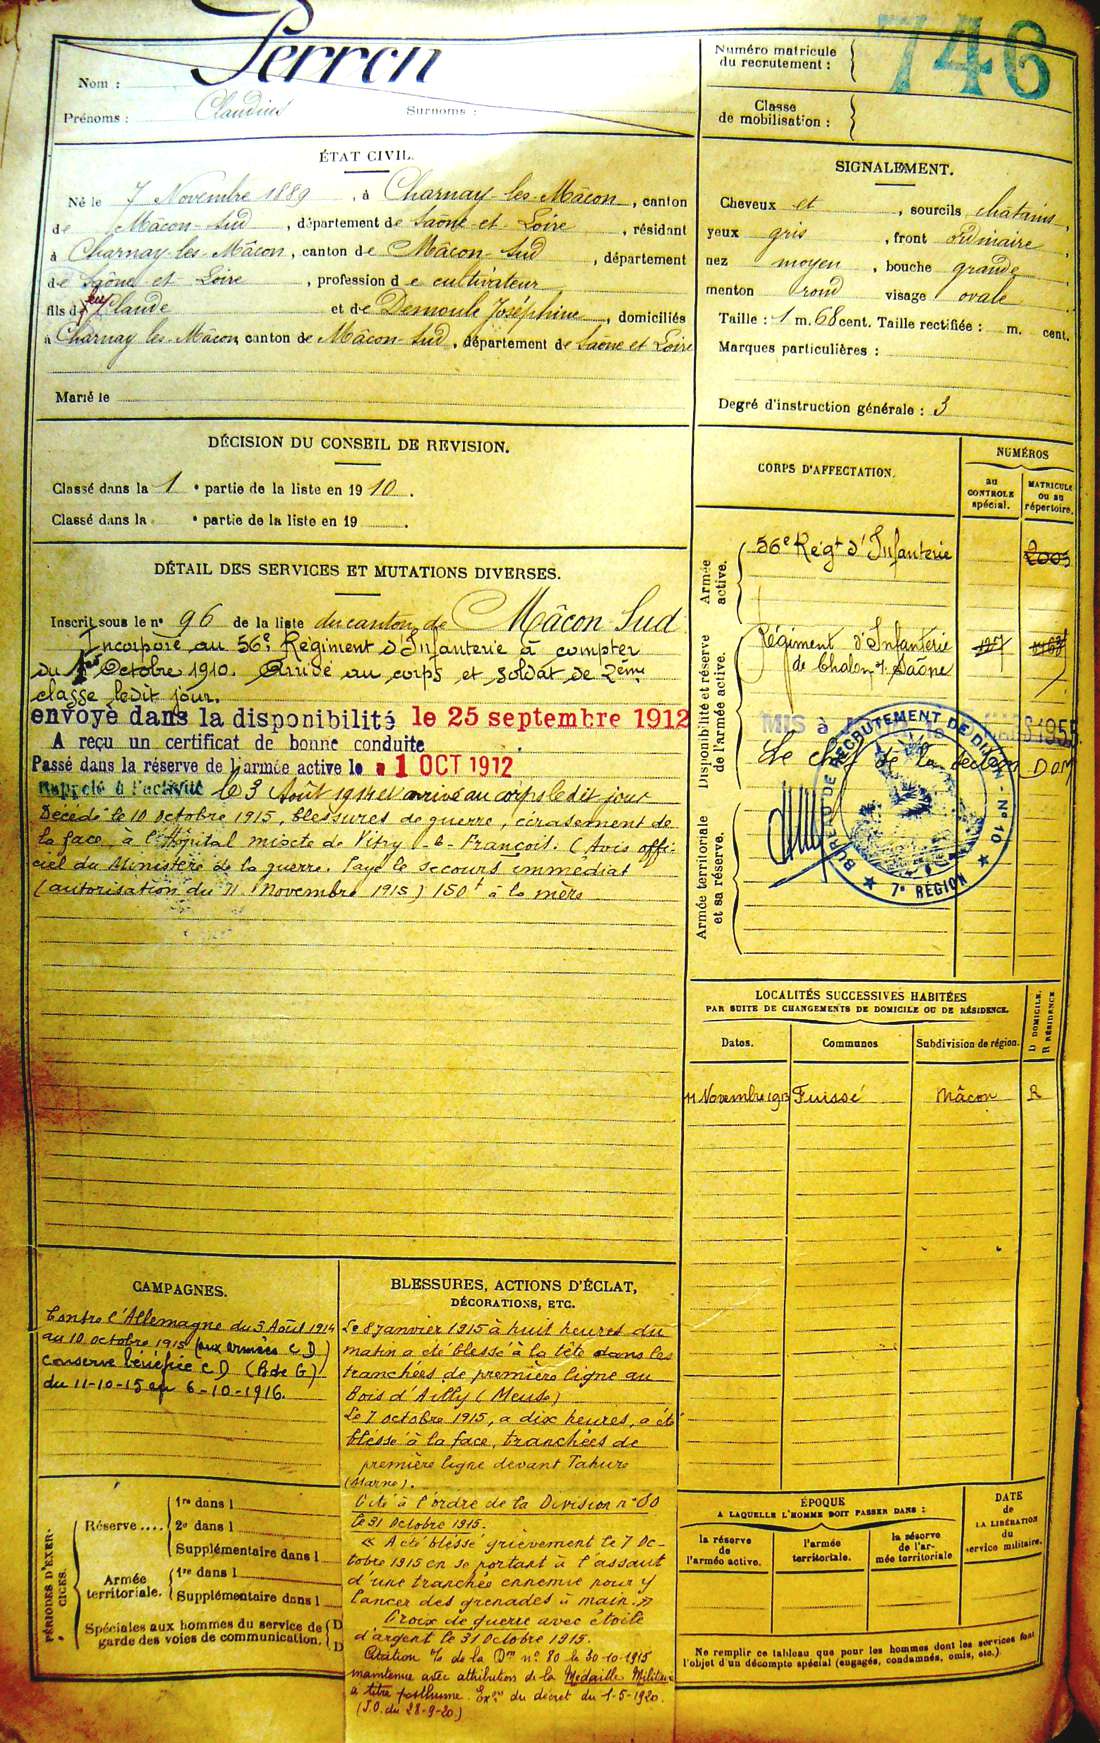 Nom : Perron
Prénoms : Claudius Surnoms :
Numéro matricule du recrutement : 746
Classe de mobilisation :
ÉTAT CIVIL.
Né le 7 Novembre 1889, à Charnay-les-Mâcon, canton
de Mâcon-Sud, département de Saône-et-Loire, résidant
à Charnay-les-Mâcon, canton de Mâcon-Sud, département
de Saône et Loire, profession de cultivateur
fils de feu Claude et de Demoule Joséphine, domiciliés
à Charnay les Mâcon, canton de Mâcon-Sud, département de Saône et Loire
Marié le
SIGNALEMENT.
Cheveux et, sourcils châtains,
yeux gris, front ordinaire
nez moyen, bouche grande
menton rond visage ovale
Taille : 1 m. 68 cent. Taille rectifiée : m. cent.
Marques particulières :
Degré d'instruction générale : 3
DÉCISION DU CONSEIL DE REVISION.
Classé dans la 1 e partie de la liste en 1910.
Classé dans la e partie de la liste en 19 .
DÉTAIL DES SERVICES ET MUTATIONS DIVERSES.
Inscrit sous le n° 96 de la liste du canton de Mâcon Sud
Incorporé au 56e Régiment d'Infanterie à compter
du 1er Octobre 1910. Arrivé au corps et soldat de 2ème
classe ledit jour.
envoyé dans la disponibilité le 25 septembre 1912
A reçu un certificat de bonne conduite
Passé dans la réserve de l'armée active le 1 OCT 1912
Rappelé à l'activité le 3 Août 1914 et arrivé au corps ledit jour
Décédé le 10 octobre 1915, blessures de guerre, écrasement de
la face, à l'Hôpital mixte de Vitry-le-François. (Avis offi-
ciel du Ministère de la guerre. Payé le secours immédiat
(autorisation du 11 Novembre 1915) 150f à la mère
CORPS D'AFFECTATION.
NUMÉROS
au CONTROLE spécial.
MATRICULE ou au répertoire.
Armée active.
56e Régt d'Infanterie 2003
Disponibilité et réserve de l'armée active.
Régiment d'Infanterie
de Chalon s/ Saône
MIS à
Le chef de la section
BUREAU DE RECRUTEMENT DE DIJON - N° 10
7e RÉGION
Armée territoriale et sa réserve.
LOCALITÉS SUCCESSIVES HABITÉES
PAR SUITE DE CHANGEMENTS DE DOMICILE OU DE RÉSIDENCE.
Dates. Communes Subdivision de région. D DOMICILE. R RÉSIDENCE
11 Novembre 1913 Fuissé Mâcon R
CAMPAGNES.
Contre l'Allemagne du 3 Août 1914
au 10 octobre 1915 (aux armées C D)
conserve bénéfice C D (B de G)
du 11-10-15 au 6-10-1916.
BLESSURES, ACTIONS D'ÉCLAT,
DÉCORATIONS, ETC.
Le 8 Janvier 1915 à huit heures du
matin a été blessé à la tête dans les
tranchées de première ligne au
Bois d'Ailly (Meuse)
Le 7 octobre 1915, a dix heures, a été
blessé à la face, tranchées de
première ligne devant Tahure
(Marne).
Cité à l'ordre de la Division n° 80
le 31 Octobre 1915.
« A été blessé grièvement le 7 Oc-
tobre 1915 en se portant à l'assaut
d'une tranchée ennemie pour y
lancer des grenades à main. »
Croix de guerre avec étoile
d'argent le 31 Octobre 1915.
Citation % de la Don n° 80 le 30-10-1915
maintenue avec attribution de la Médaille Militaire
à titre posthume. Exon du décret du 1-5-1920.
(J.O. du 28-9-20)
PÉRIODES D'EXERCICES.
Réserve .... 1re dans l
2e dans l
Supplémentaire dans l
Armée territoriale. 1re dans l
Supplémentaire dans l
Spéciales aux hommes du service de D
garde des voies de communication. D
ÉPOQUE
A LAQUELLE L'HOMME DOIT PASSER DANS :
la réserve de l'armée active.
l'armée territoriale.
la réserve de l'armée territoriale
DATE de LA LIBÉRATION du service militaire.
Ne remplir ce tableau que pour les hommes dont les services font
l'objet d'un décompte spécial (engagés, condamnés, omis, etc.)